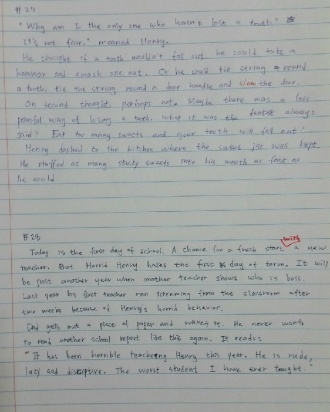 #27
"Why am I the only one who hasn't lose a tooth?
It's not fair," moaned Henry.
He thought if a tooth wouldn't fall out he could take a
hammer and smash one out. Or he could tie string round
a tooth, tie the string round a door handle and slam the door.
On second thought, perhaps not. Maybe there was a less
painful way of losing a tooth. What it was the dentist always
said? Eat too many sweets and your teeth will fall out!
Henry dashed to the kitchen where the sweet jar was kept.
He stuffed as many sweets into his mouth as fast as
he could
#28
Today is the first day of school. A chance for a fresh start with a new
teacher. But Horrid Henry hates the first day of term. It will
be just another year when another teacher shows who is boss.
Last year his first teacher ran screaming from the classroom after
two weeks because of Henry's horrid behavior.
Dad gets out a piece of paper and waves it. He never wants
to read another school report like this again. It reads:
"It has been horrible teaching Henry this year. He is rude,
lazy and disruptive. The worst student I have ever taught."